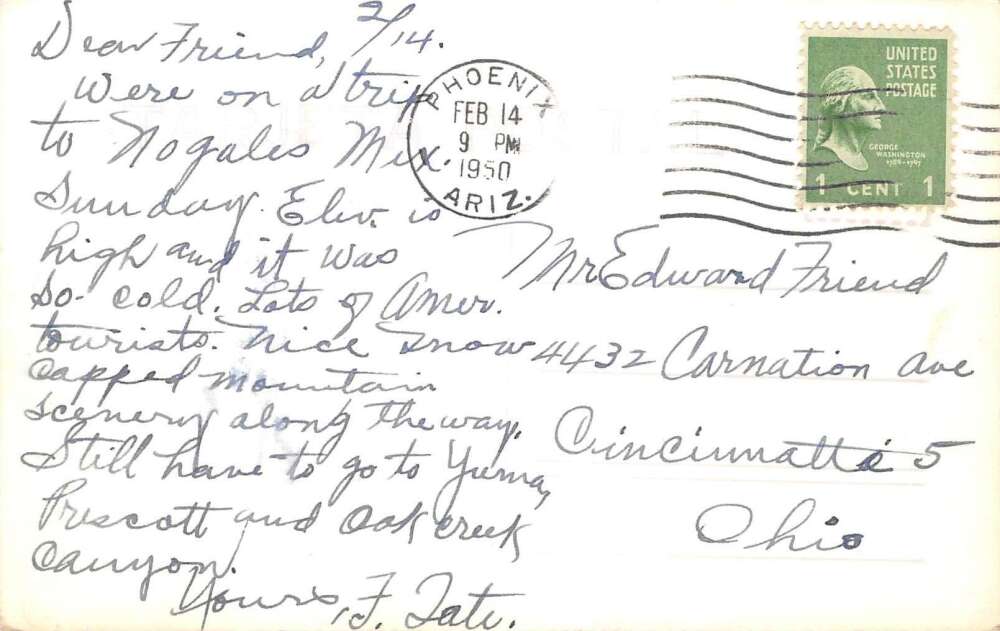 2/14.
Dear Friend,
Were on a trip
to Nogales Mex.
Sunday. Elev. is
high and it was
so cold. Lots of Amer.
tourists. Nice snow
capped mountain
scenery along the way.
Still have to go to Yuma,
Prescott and Oak creek
Canyon.
Yours, F. Tate.
PHOENIX
FEB 14
9 PM
1950
ARIZ.
UNITED
STATES
POSTAGE
GEORGE
WASHINGTON
1789-1797
1 CENT 1
Mr Edward Friend
4432 Carnation Ave
Cincinnatti 5
Ohio